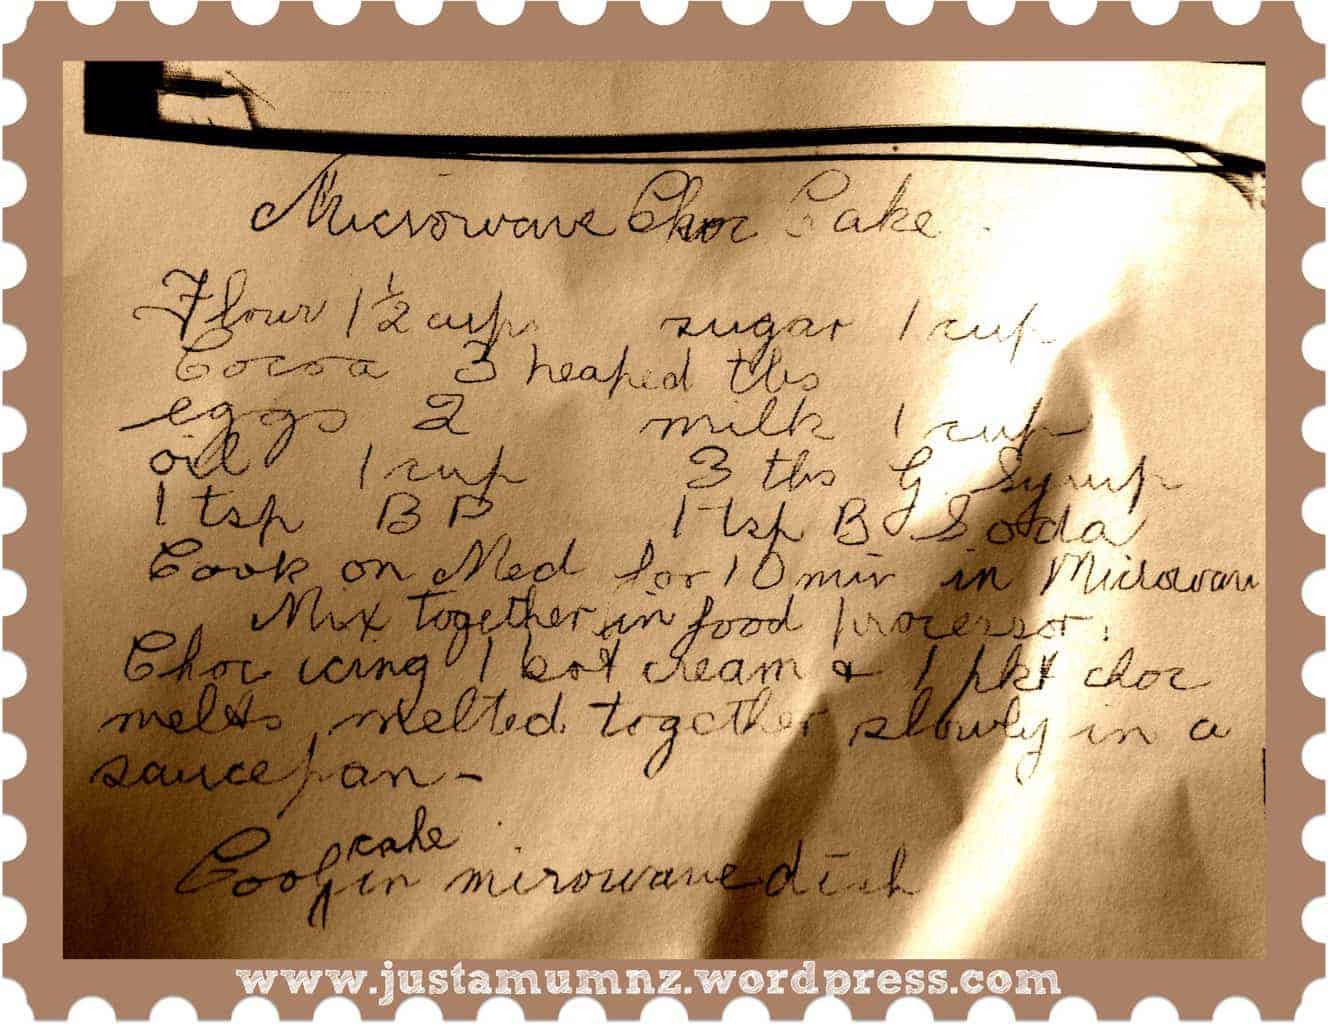 Microwave Choc Cake
Flour 1 1/2 cup sugar 1 cup
Cocoa 3 heaped tbs
eggs 2 milk 1 cup
oil 1 cup 3 tbs G. Syrup
1 tsp BP 1 tsp B Soda
Cook on Med for 10 min in Microwave
Mix together in food processor.
Choc icing 1 bot cream & 1 pkt choc
melts melted together slowly in a
saucepan -
cake
Cook in mirowave dish
www.justamumnz.wordpress.com